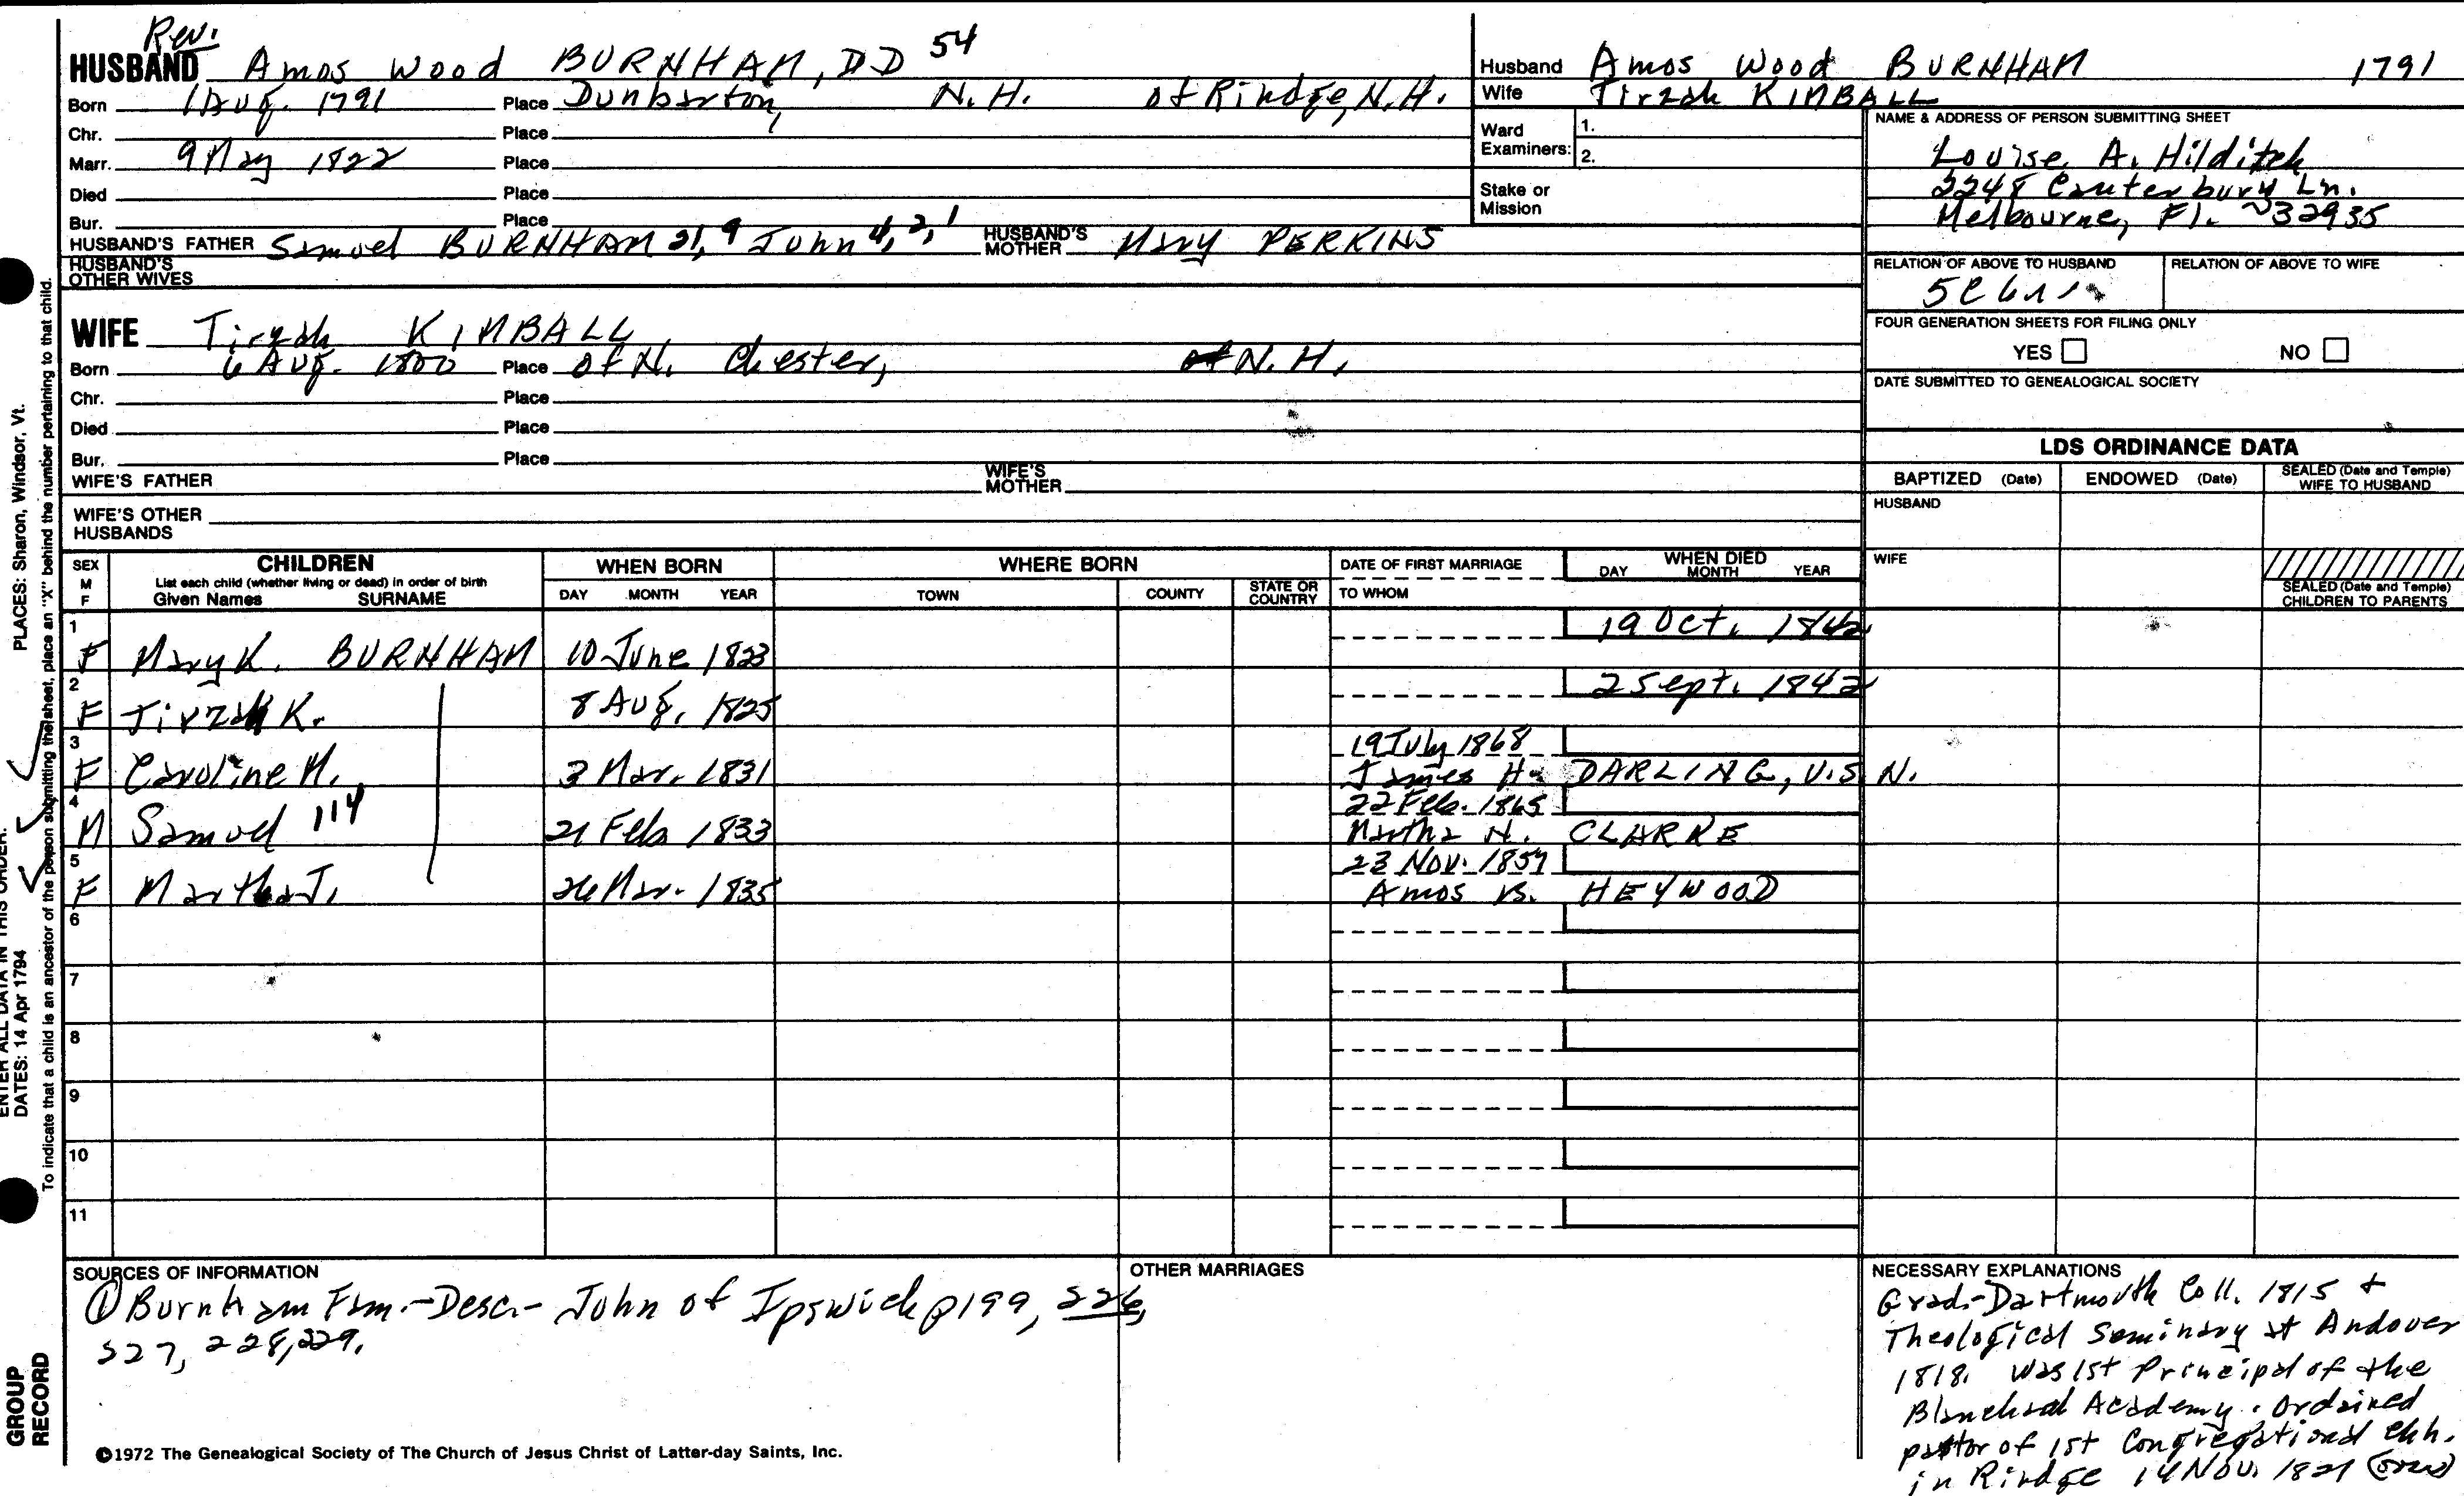 Rev.
HUSBAND Amos Wood BURNHAM, DD 54
Born 1 Aug. 1791 Place Dunbarton, N.H. of Rindge, N.H.
Chr. Place
Marr. 9 May 1822 Place
Died Place
Bur. Place
HUSBAND'S FATHER Samuel BURNHAM 21, 9 John 4, 2, 1 HUSBAND'S MOTHER Mary PERKINS
HUSBAND'S OTHER WIVES
WIFE Tirzah KIMBALL
Born 6 Aug. 1800 Place of N. Chester, N.H.
Chr. Place
Died Place
Bur. Place
WIFE'S FATHER WIFE'S MOTHER
WIFE'S OTHER HUSBANDS
Husband Amos Wood BURNHAM 1791
Wife Tirzah KIMBALL
Ward Examiners: 1.
2.
Stake or Mission
NAME & ADDRESS OF PERSON SUBMITTING SHEET
Louise A. Hilditch
2248 Canterbury Ln.
Melbourne, Fl. ~32935
RELATION OF ABOVE TO HUSBAND RELATION OF ABOVE TO WIFE
FOUR GENERATION SHEETS FOR FILING ONLY
YES NO
DATE SUBMITTED TO GENEALOGICAL SOCIETY
LDS ORDINANCE DATA
BAPTIZED (Date) ENDOWED (Date) SEALED (Date and Temple) WIFE TO HUSBAND
HUSBAND
WIFE
SEALED (Date and Temple) CHILDREN TO PARENTS
SEX M F CHILDREN WHEN BORN WHERE BORN DATE OF FIRST MARRIAGE WHEN DIED
List each child (whether living or dead) in order of birth
Given Names SURNAME DAY MONTH YEAR TOWN COUNTY STATE OR COUNTRY TO WHOM DAY MONTH YEAR
1 19 Oct. 1842
F Mary K. BURNHAM 10 June 1823
2 2 Sept. 1842
F Tirzah K. 8 Aug. 1825
3 19 July 1868
F Caroline M. 3 Mar. 1831 James H. DARLING, U.S.N.
4 22 Feb. 1865
M Samuel 114 21 Feb 1833 Martha N. CLARKE
5 23 Nov. 1857
F Martha J. 26 Mar. 1835 Amos B. HEYWOOD
6
7
8
9
10
11
SOURCES OF INFORMATION
① Burnham Fam.-Desc.- John of Ipswich p199, 226,
227, 228, 229.
OTHER MARRIAGES
NECESSARY EXPLANATIONS
Grad.-Dartmouth Coll. 1815 +
Theological Seminary at Andover
1818. Was 1st Principal of the
Blanchard Academy. Ordained
pastor of 1st Congregational Chh.
in Rindge 14 Nov. 1821 (over)
©1972 The Genealogical Society of The Church of Jesus Christ of Latter-day Saints, Inc.
ENTER ALL DATA IN THIS ORDER:
DATES: 14 Apr 1794 PLACES: Sharon, Windsor, Vt.
To indicate that a child is an ancestor of the person submitting the sheet, place an "X" behind the number pertaining to that child.
GROUP
RECORD